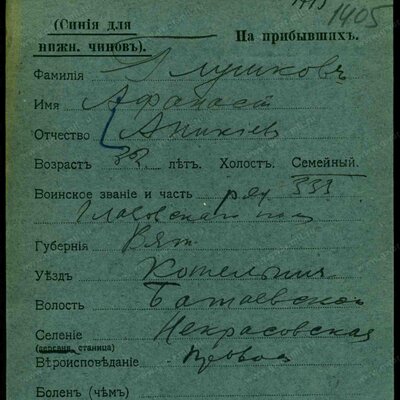 1405
(Синія для
нижн. чиновъ).
На прибывшихъ.
Фамилія Глушковъ
Имя Афанасій
Отчество Аникіев
Возрастъ 32 лѣтъ. Холостъ. Семейный.
Воинское званіе и часть ряд 333
Глазовскаго пол
Губернія Вят
Уѣздъ Котельнич
Волость Батаевской
Селеніе Некрасовская
(деревня, станица)
Вѣроисповѣданіе правос
Боленъ (чѣмъ)